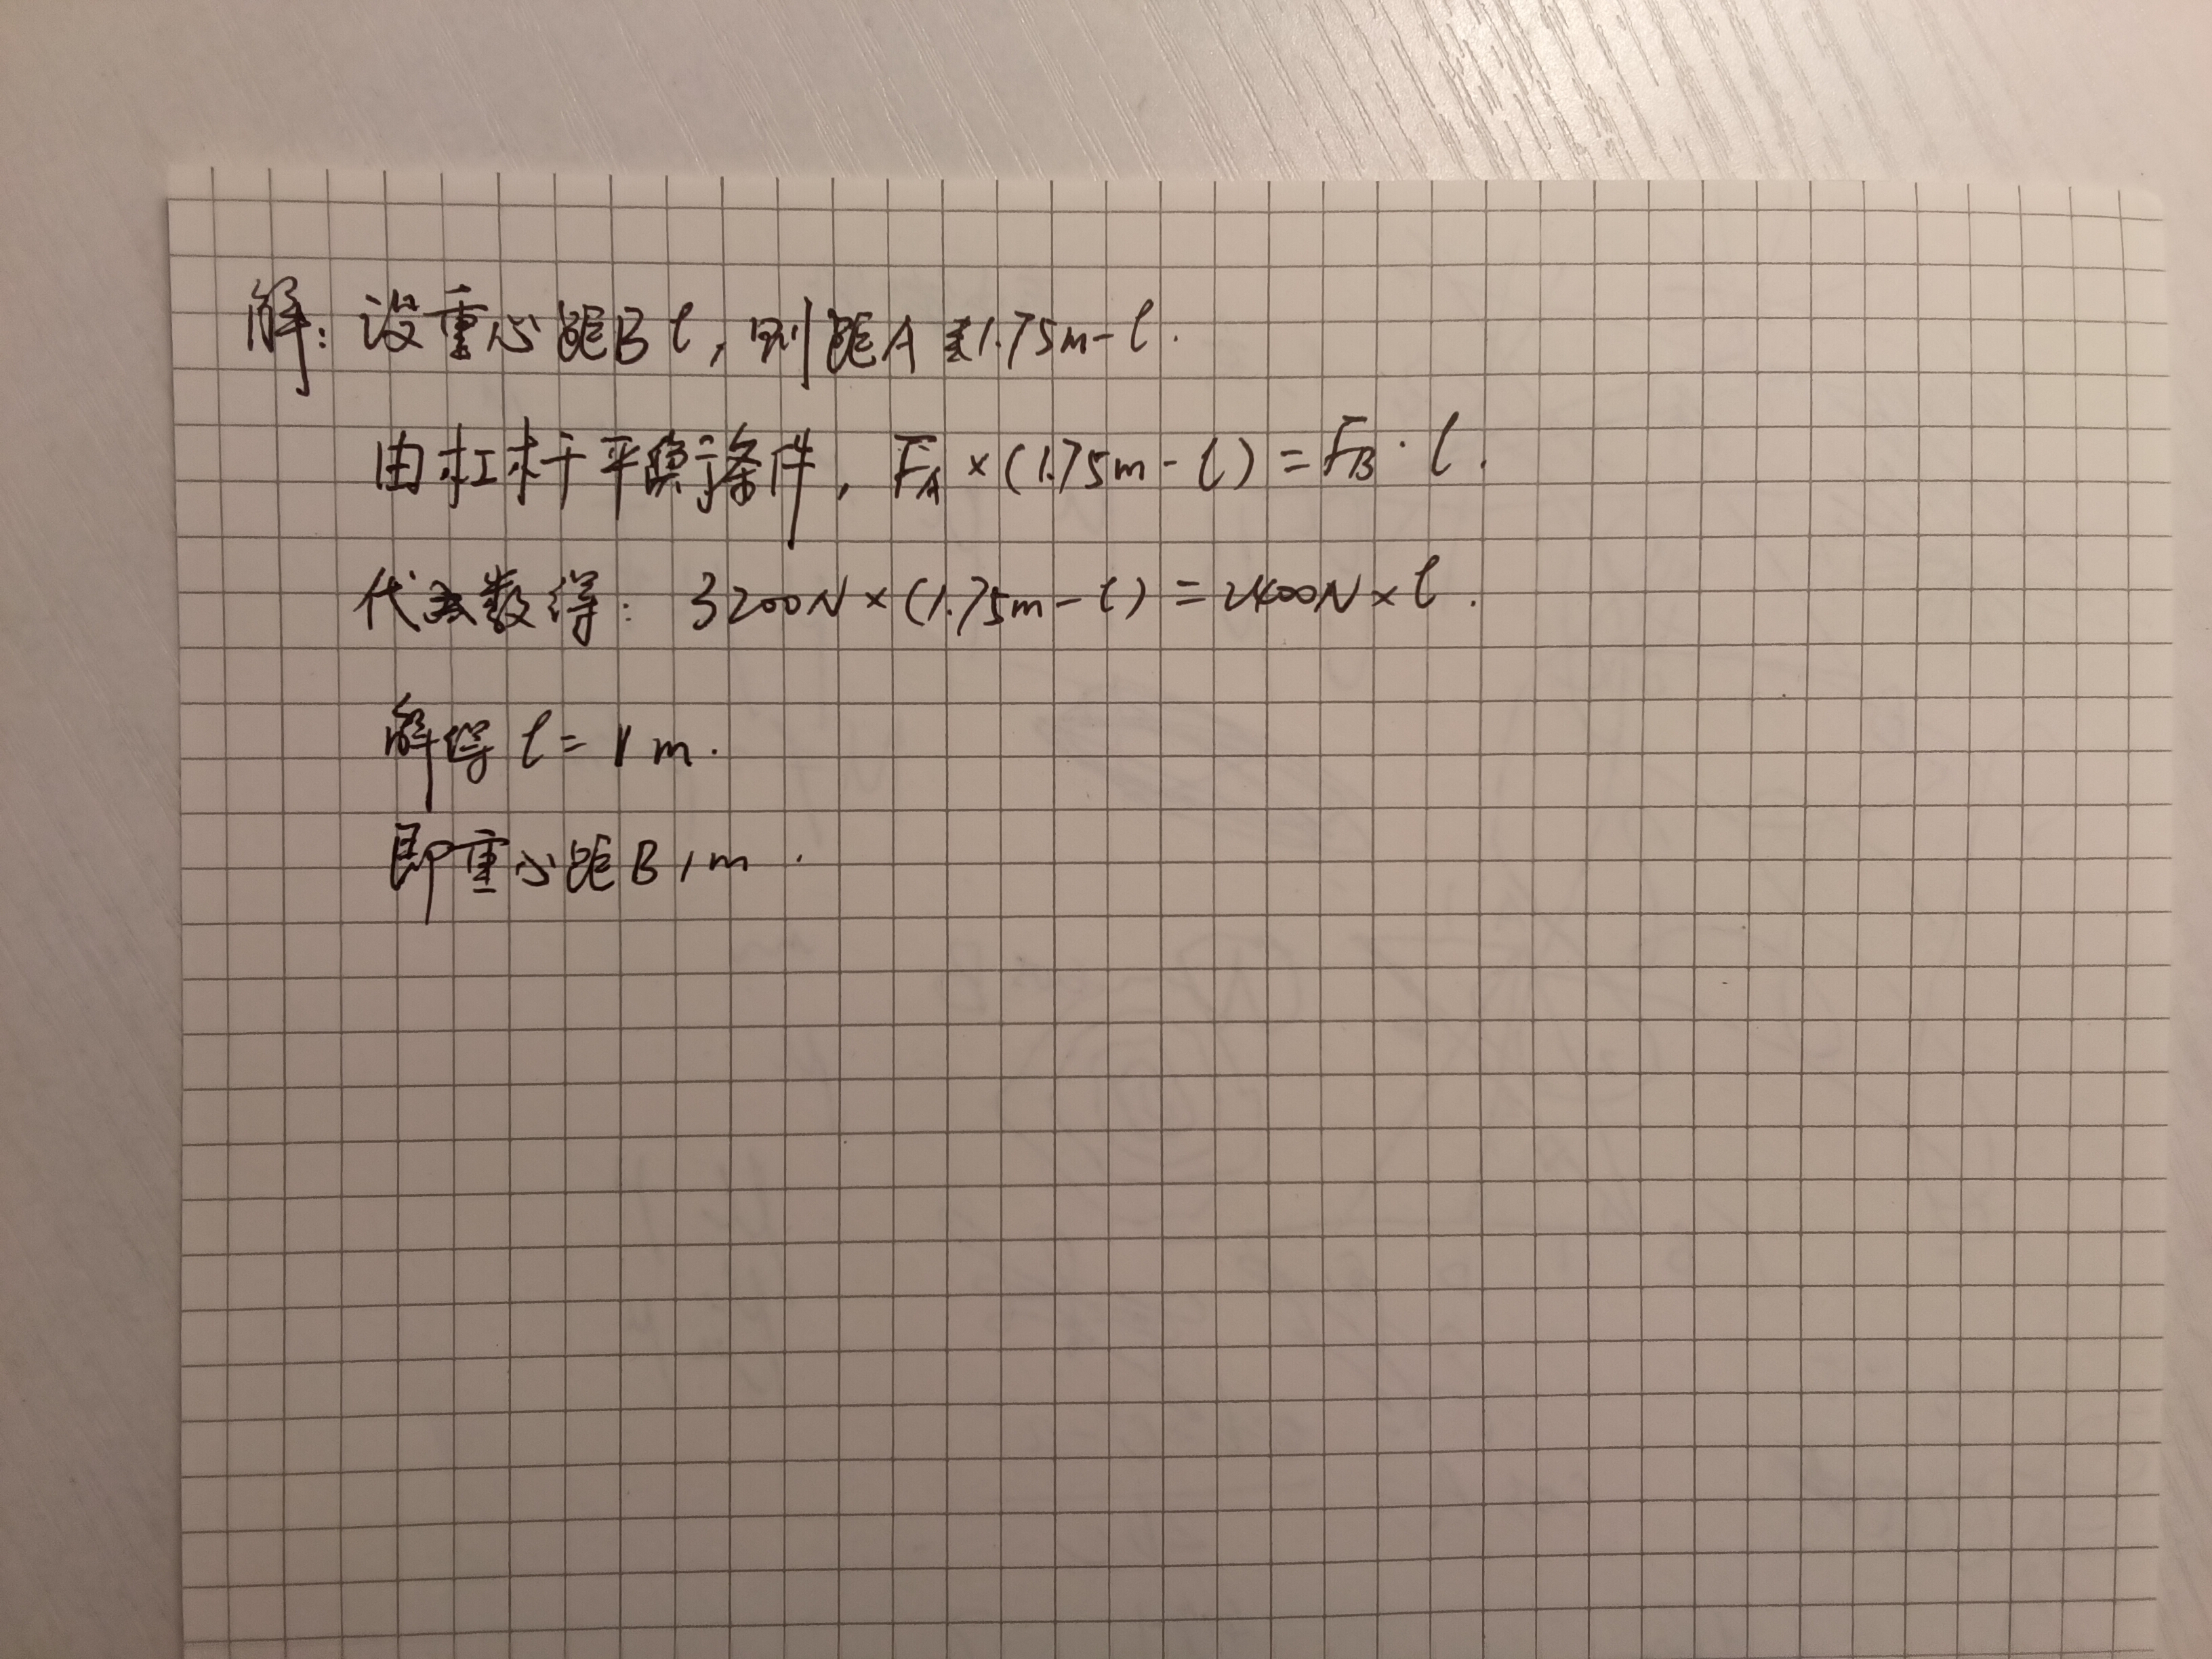 解：设重心距B l，则距A 1.75m-l.
由杠杆平衡条件，F_A×(1.75m-l)=F_B·l.
代数得：3200N×(1.75m-l)=2400N×l.
解得 l=1m.
即重心距B 1m.